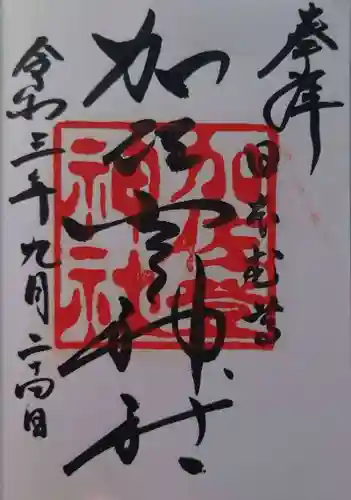 奉拝
日本武尊
加佐登神社
加佐登
神社
令和三年九月二十四日